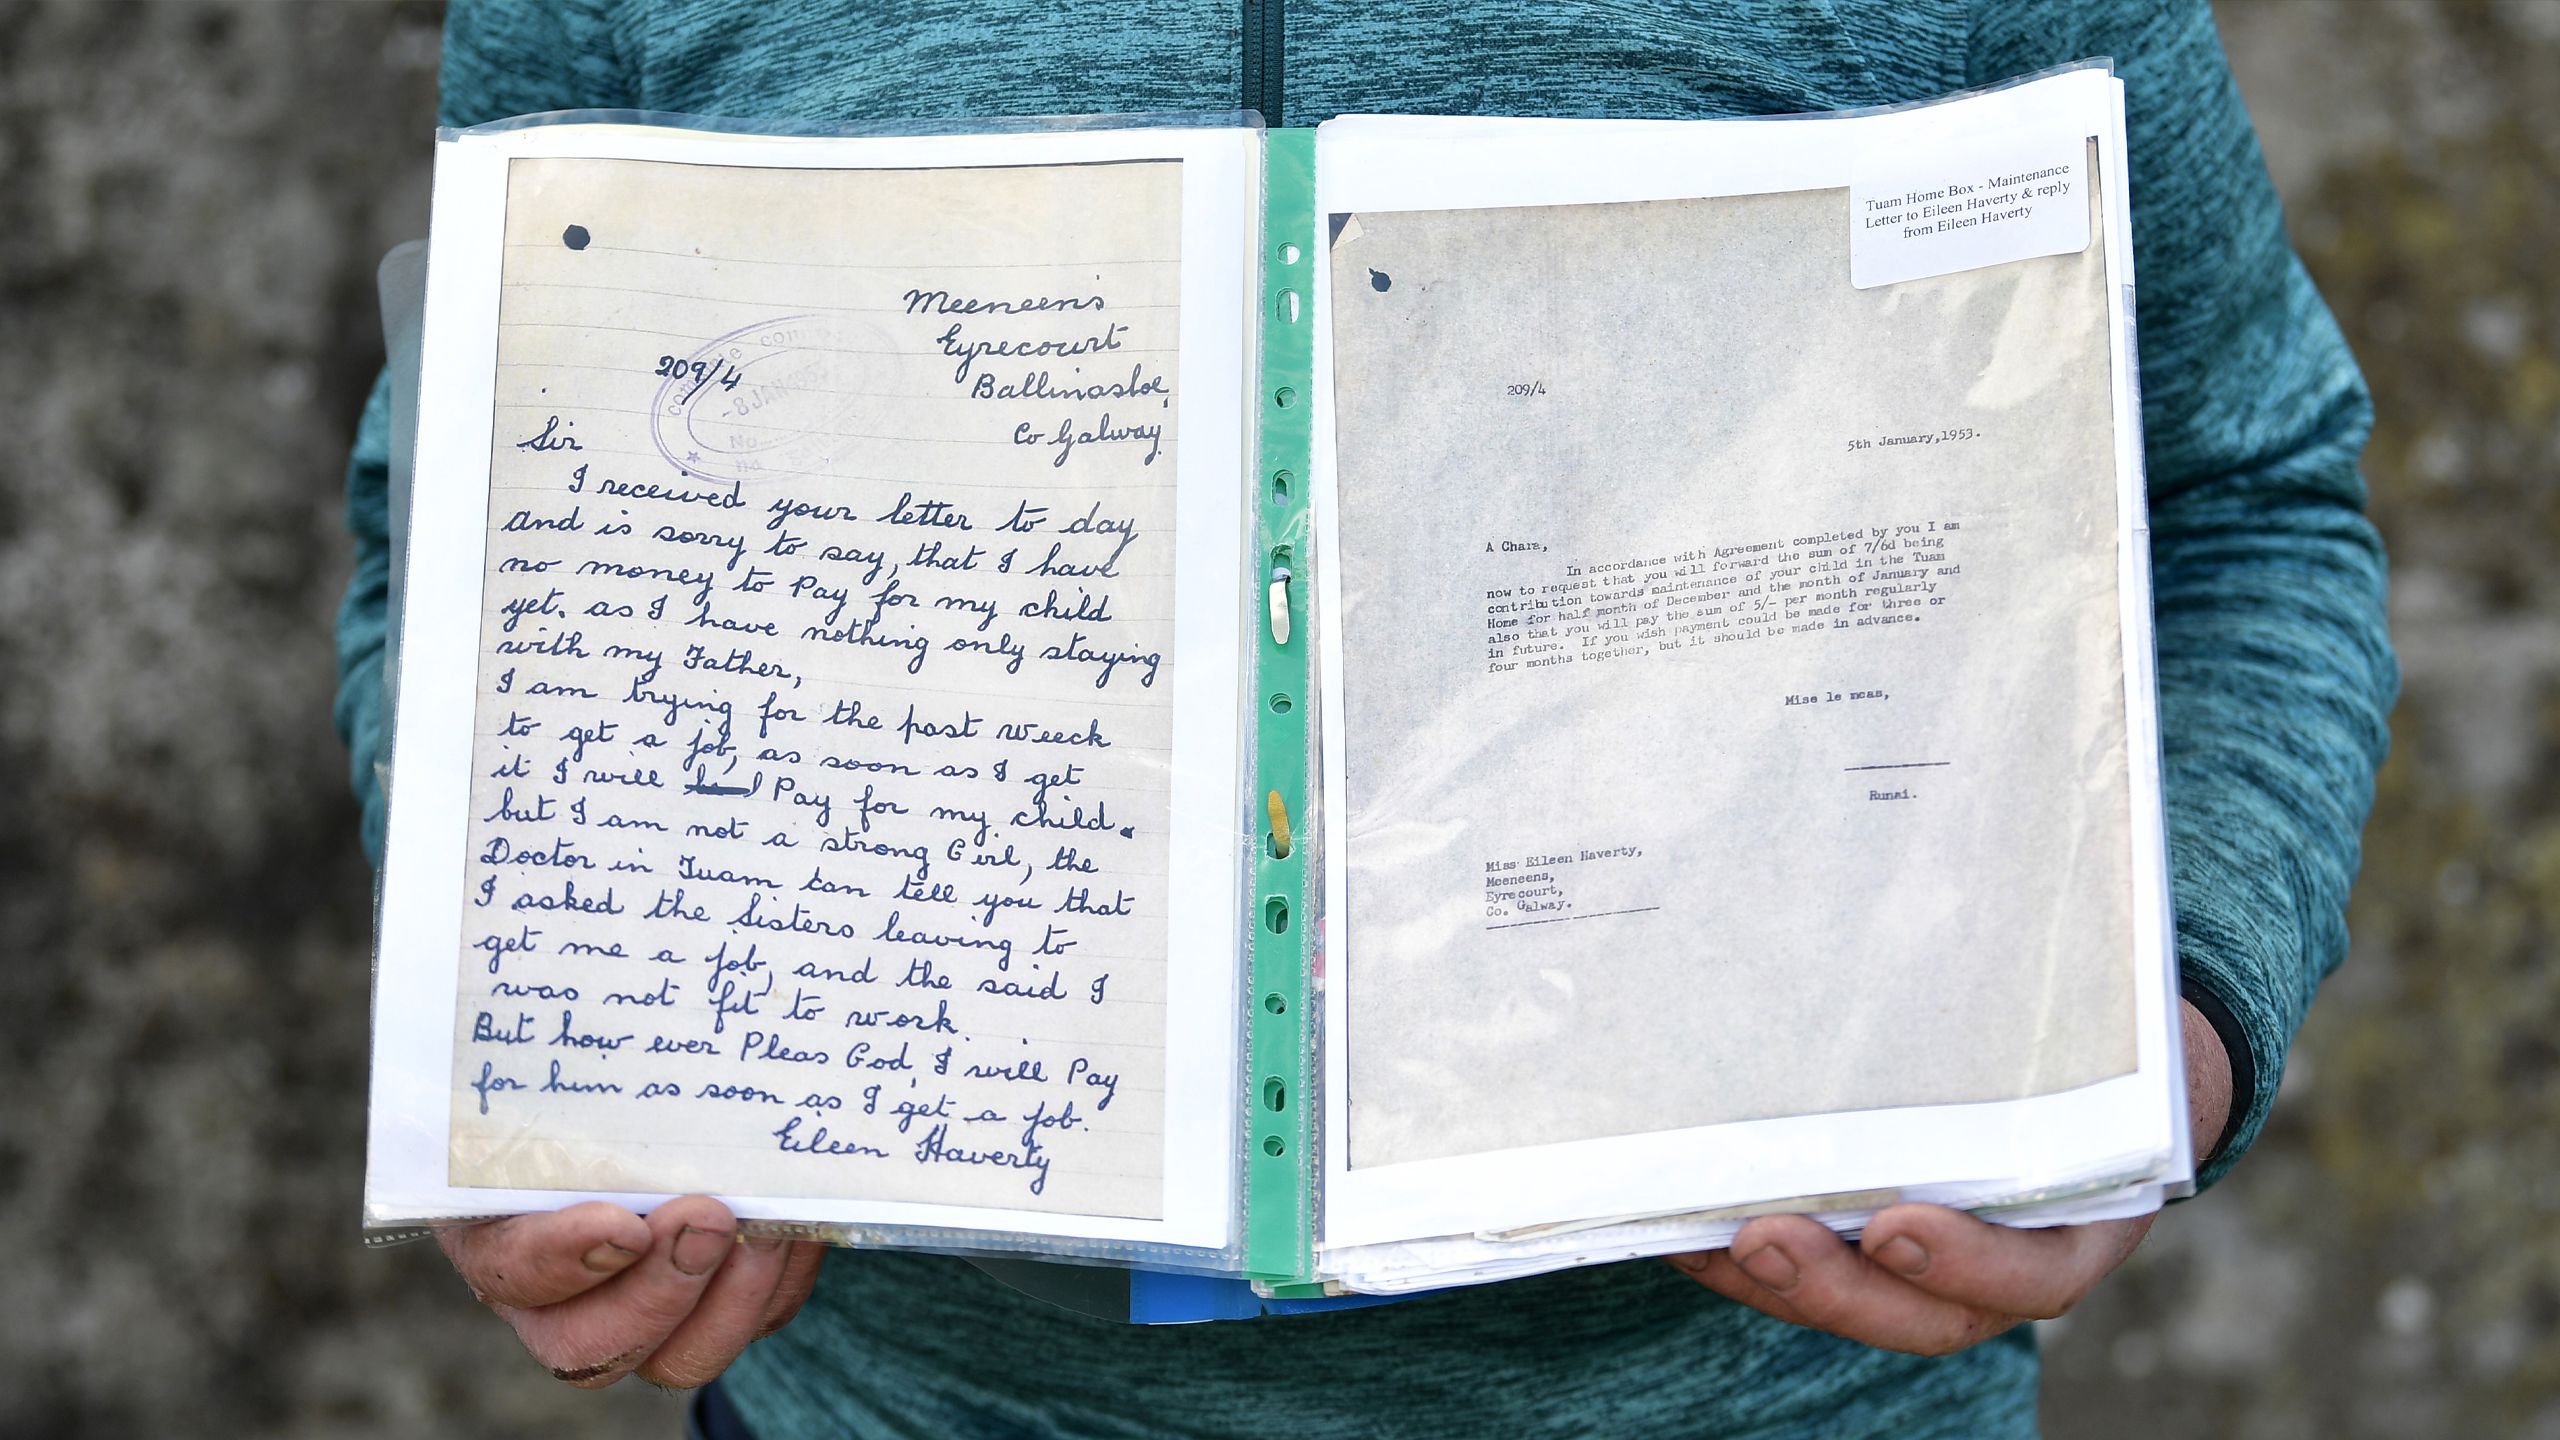 Meeneen's
Eyrecourt
209/4
Ballinasloe,
Co Galway.
-8 JAN
No
Sir
I received your letter to day
and is sorry to say, that I have
no money to Pay for my child
yet. as I have nothing only staying
with my Father,
I am trying for the past weeck
to get a job, as soon as I get
it I will Pay for my child.
but I am not a strong Girl, the
Doctor in Tuam can tell you that
I asked the Sisters leaving to
get me a job, and the said I
was not fit to work.
But how ever Pleas God, I will Pay
for him as soon as I get a job.
Eileen Haverty
Tuam Home Box - Maintenance
Letter to Eileen Haverty & reply
from Eileen Haverty
209/4
5th January,1953.
A Chara,
In accordance with Agreement completed by you I am
now to request that you will forward the sum of 7/6d being
contribution towards maintenance of your child in the Tuam
Home for half month of December and the month of January and
also that you will pay the sum of 5/- per month regularly
in future. If you wish payment could be made for three or
four months together, but it should be made in advance.
Mise le meas,
Runai.
Miss Eileen Haverty,
Meeneens,
Eyrecourt,
Co. Galway.